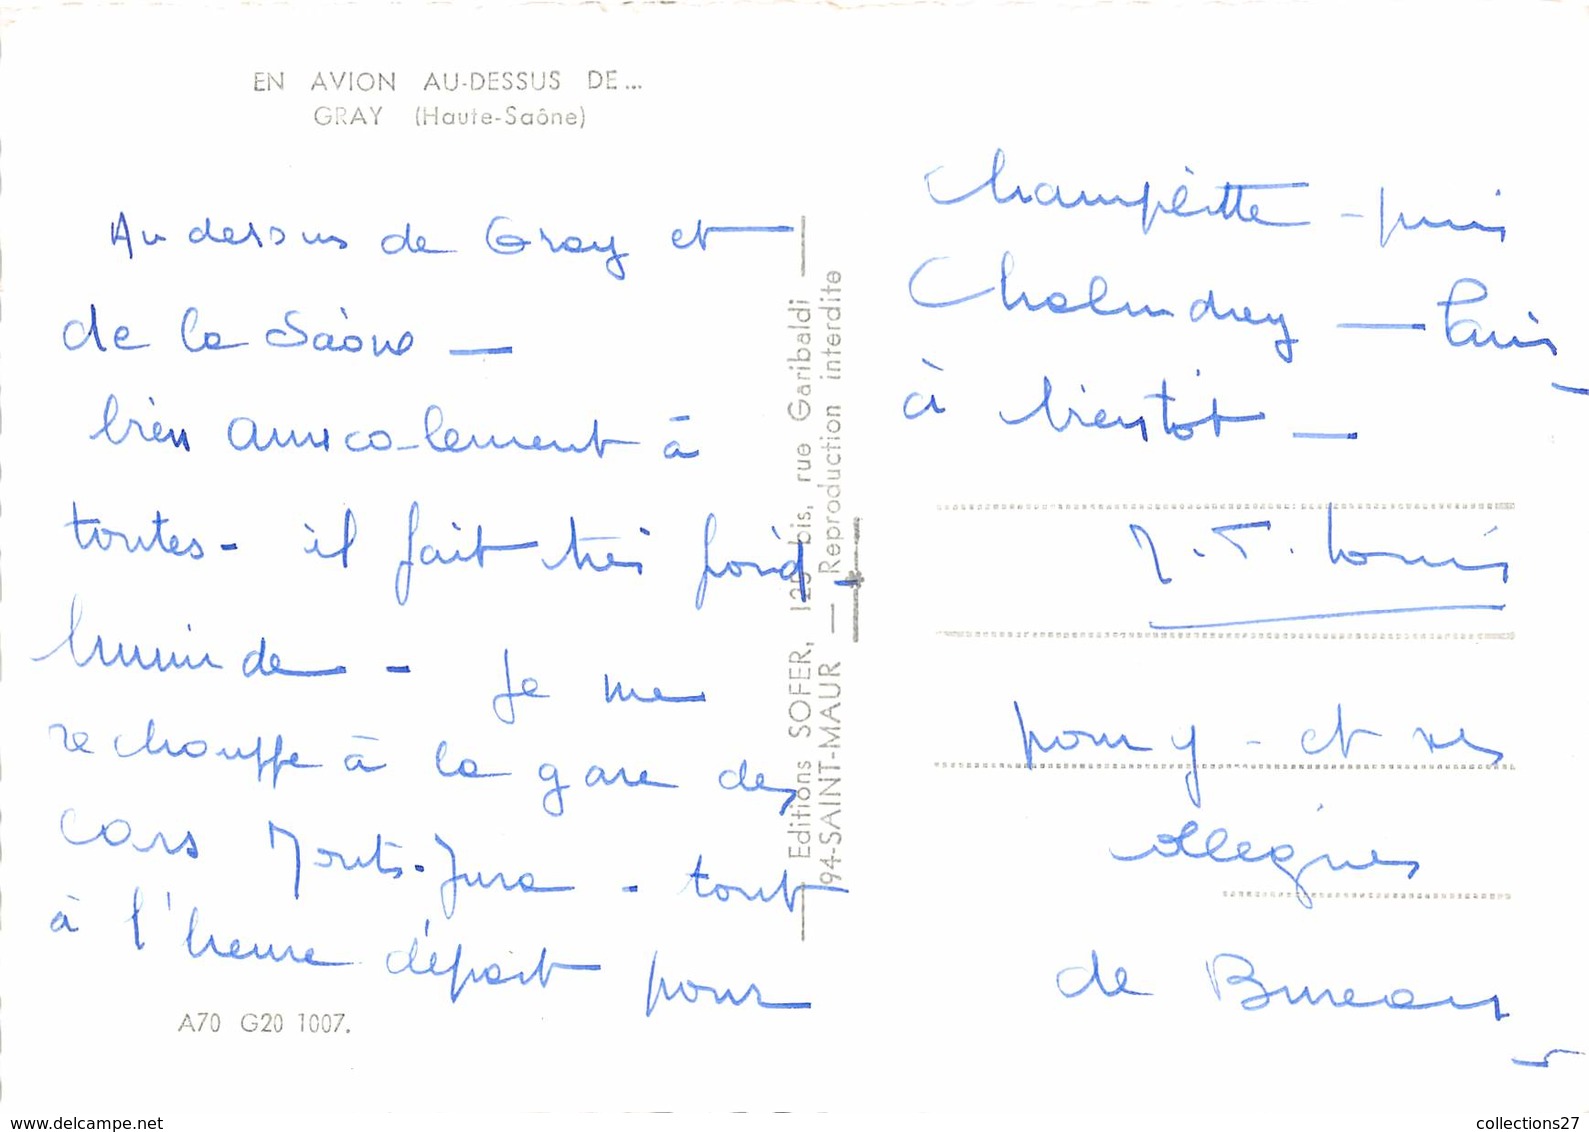 EN AVION AU-DESSUS DE...
GRAY (Haute-Saône)
Au dessus de Gray et
de la Saône —
bien amicalement à
toutes - il fait très froid -
humide - Je me
rechauffe à la gare des
cars Monts-Jura - tout
à l'heure départ pour
A70 G20 1007.
Editions SOFER, 125 bis, rue Garibaldi
94-SAINT-MAUR — Reproduction interdite
Champlitte - puis
Chalindrey — Paris
à bientôt —
pour - et ses
collègues
de Bureau
collections27